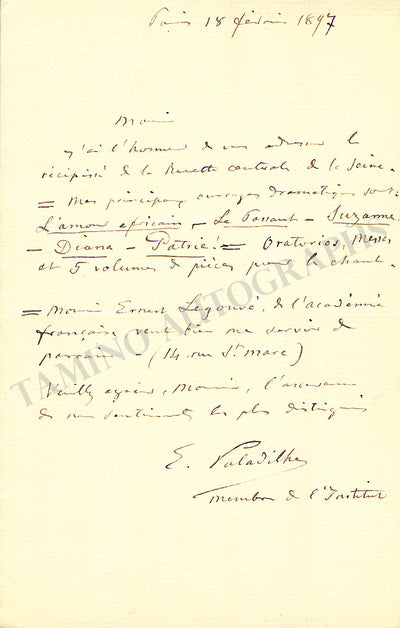 Paris 18 février 1897
Monsieur
j'ai l'honneur de vous adresser le
récépissé de la Recette centrale de la Seine.
= Mes principaux ouvrages dramatiques sont:
L'amour africain, - Le Passant - Suzanne
- Diana - Patrie! = Oratorios, Messes
et 5 volumes de pièces pour le chant.
= Monsieur Ernest Legouvé, de l'académie
française veut bien me servir de
parrain - (14 rue St Marc)
Veuillez agréer, Monsieur, l'assurance
de mes sentiments les plus distingués
E. Paladilhe
membre de l'Institut
TAMINO AUTOGRAPHS